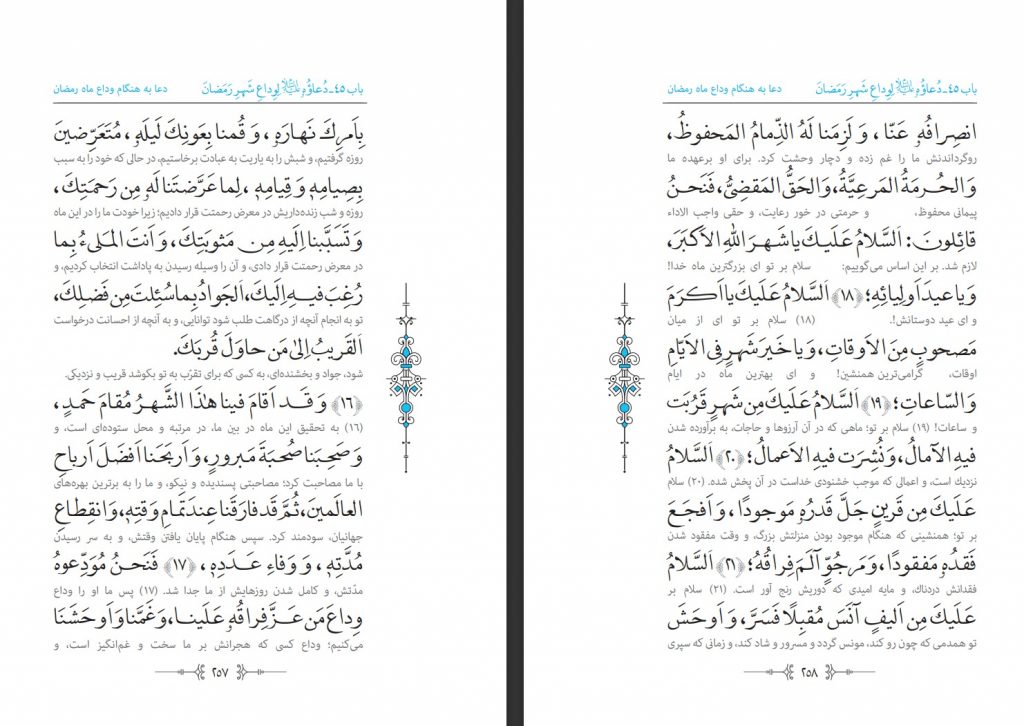 باب ٤٥ـ دُعاؤُهُ عَلَيْهِ‌السَّلام لِوِداعِ شَهرِ رَمَضانَ دعا به هنگام وداع ماه رمضان
بِاَمرِكَ نَهارَهُ، وَ قُمنا بِعَونِكَ لَيلَهُ، مُتَعَرِّضينَ
روزه گرفتیم، و شبش را به یاریت به عبادت برخاستیم، در حالی که خود را به سبب
بِصِيامِهِ وَ قِيامِهِ، لِما عَرَّضتَنا لَهُ مِن رَحمَتِكَ،
روزه و شب زنده‌داریش در معرض رحمتت قرار دادیم؛ زیرا خودت ما را در این ماه
وَ تَسَبَّبنا اِلَيهِ مِن مَثوبَتِكَ، وَ اَنتَ المَلىءُ بِما
در معرض رحمتت قرار دادی، و آن را وسیله رسیدن به پاداشت انتخاب کردیم، و
رُغِبَ فيهِ اِلَيكَ، اَلجَوادُ بِما سُئِلتَ مِن فَضلِكَ،
تو به انجام آنچه از درگاهت طلب شود توانایی، و به آنچه از احسانت درخواست
اَلقَريبُ اِلىٰ مَن حاوَلَ قُربَكَ.
شود، جواد و بخشنده‌ای، به کسی که برای تقرّب به تو بکوشد قریب و نزدیکی.
﴿١٦﴾ وَ قَد اَقامَ فينا هٰذَا الشَّهرُ مُقامَ حَمدٍ،
(۱۶) به تحقیق این ماه در بین ما، در مرتبه و محل ستوده‌ای است، و
وَ صَحِبَنا صُحبَةَ مَبرورٍ، وَ اَربَحَنا اَفضَلَ اَرباحِ
با ما مصاحبت کرد؛ مصاحبتی پسندیده و نیکو، و ما را به برترین بهره‌های
العالَمينَ، ثُمَّ قَد فارَقَنا عِندَ تَمامِ وَقتِهِ، وَ انقِطاعِ
جهانیان، سودمند کرد. سپس هنگام پایان یافتن وقتش، و به سر رسیدن
مُدَّتِهِ، وَ وَفاءِ عَدَدِهِ، ﴿١٧﴾ فَنَحنُ مُوَدِّعوهُ
مدّتش، و کامل شدن روزهایش از ما جدا شد. (۱۷) پس ما او را وداع
وِداعَ مَن عَزَّ فِراقُهُ عَلَينا، وَ غَمَّنا وَ اَوحَشَنَا
می‌کنیم؛ وداع کسی که هجرانش بر ما سخت و غم‌انگیز است، و
٢٥٧
باب ٤٥ـ دُعاؤُهُ عَلَيْهِ‌السَّلام لِوِداعِ شَهرِ رَمَضانَ دعا به هنگام وداع ماه رمضان
انصِرافُهُ عَنّا، وَ لَزِمَنا لَهُ الذِّمامُ المَحفوظُ،
روگرداندنش ما را غم زده و دچار وحشت کرد. برای او برعهده ما
وَ الحُرمَةُ المَرعِيَّةُ، وَ الحَقُّ المَقضِىُّ، فَنَحنُ
پیمانی محفوظ، و حرمتی در خور رعایت، و حقی واجب الاداء
قائِلونَ: اَلسَّلامُ عَلَيكَ يا شَهرَ اللهِ الاَكبَرَ،
لازم شد. بر این اساس می‌گوییم: سلام بر تو ای بزرگترین ماه خدا!
وَ يا عيدَ اَولِيائِهِ؛ ﴿١٨﴾ اَلسَّلامُ عَلَيكَ يا اَكرَمَ
و ای عید دوستانش!. (۱۸) سلام بر تو ای از میان
مَصحوبٍ مِنَ الاَوقاتِ، وَ يا خَيرَ شَهرٍ فِى الاَيّامِ
اوقات، گرامی‌ترین همنشین! و ای بهترین ماه در ایام
وَ السّاعاتِ؛ ﴿١٩﴾ اَلسَّلامُ عَلَيكَ مِن شَهرٍ قَرُبَت
و ساعات! (۱۹) سلام بر تو؛ ماهی که در آن آرزوها و حاجات، به برآورده شدن
فيهِ الآمالُ، وَ نُشِرَت فيهِ الاَعمالُ؛ ﴿٢٠﴾ اَلسَّلامُ
نزدیك است، و اعمالی که موجب خشنودی خداست در آن پخش شده. (۲۰) سلام
عَلَيكَ مِن قَرينٍ جَلَّ قَدرُهُ مَوجودًا، وَ اَفجَعَ
بر تو؛ همنشینی که هنگام موجود بودن منزلتش بزرگ، و وقت مفقود شدن
فَقدُهُ مَفقودًا، وَ مَرجُوٍّ آلَمَ فِراقُهُ؛ ﴿٢١﴾ اَلسَّلامُ
فقدانش دردناك، و مایه امیدی که دوریش رنج آور است. (۲۱) سلام بر
عَلَيكَ مِن اَليفٍ آنَسَ مُقبِلًا فَسَرَّ، وَ اَوحَشَ
تو همدمی که چون رو کند، مونس گردد و مسرور و شاد کند، و زمانی که سپری
٢٥٨